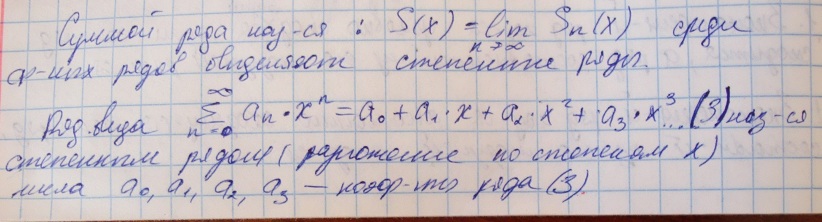 Суммой ряда наз-ся : S(x) = lim Sn(x) среди
n→∞
ф-ных рядов выделяют степенные ряды.
Ряд вида ∑ aₙ·xⁿ = a₀ + a₁·x + a₂·x² + a₃·x³... (3) наз-ся
n=0 ∞
степенным рядом (разложение по степеням x)
числа a₀, a₁, a₂, a₃ – коэф-ты ряда (3).